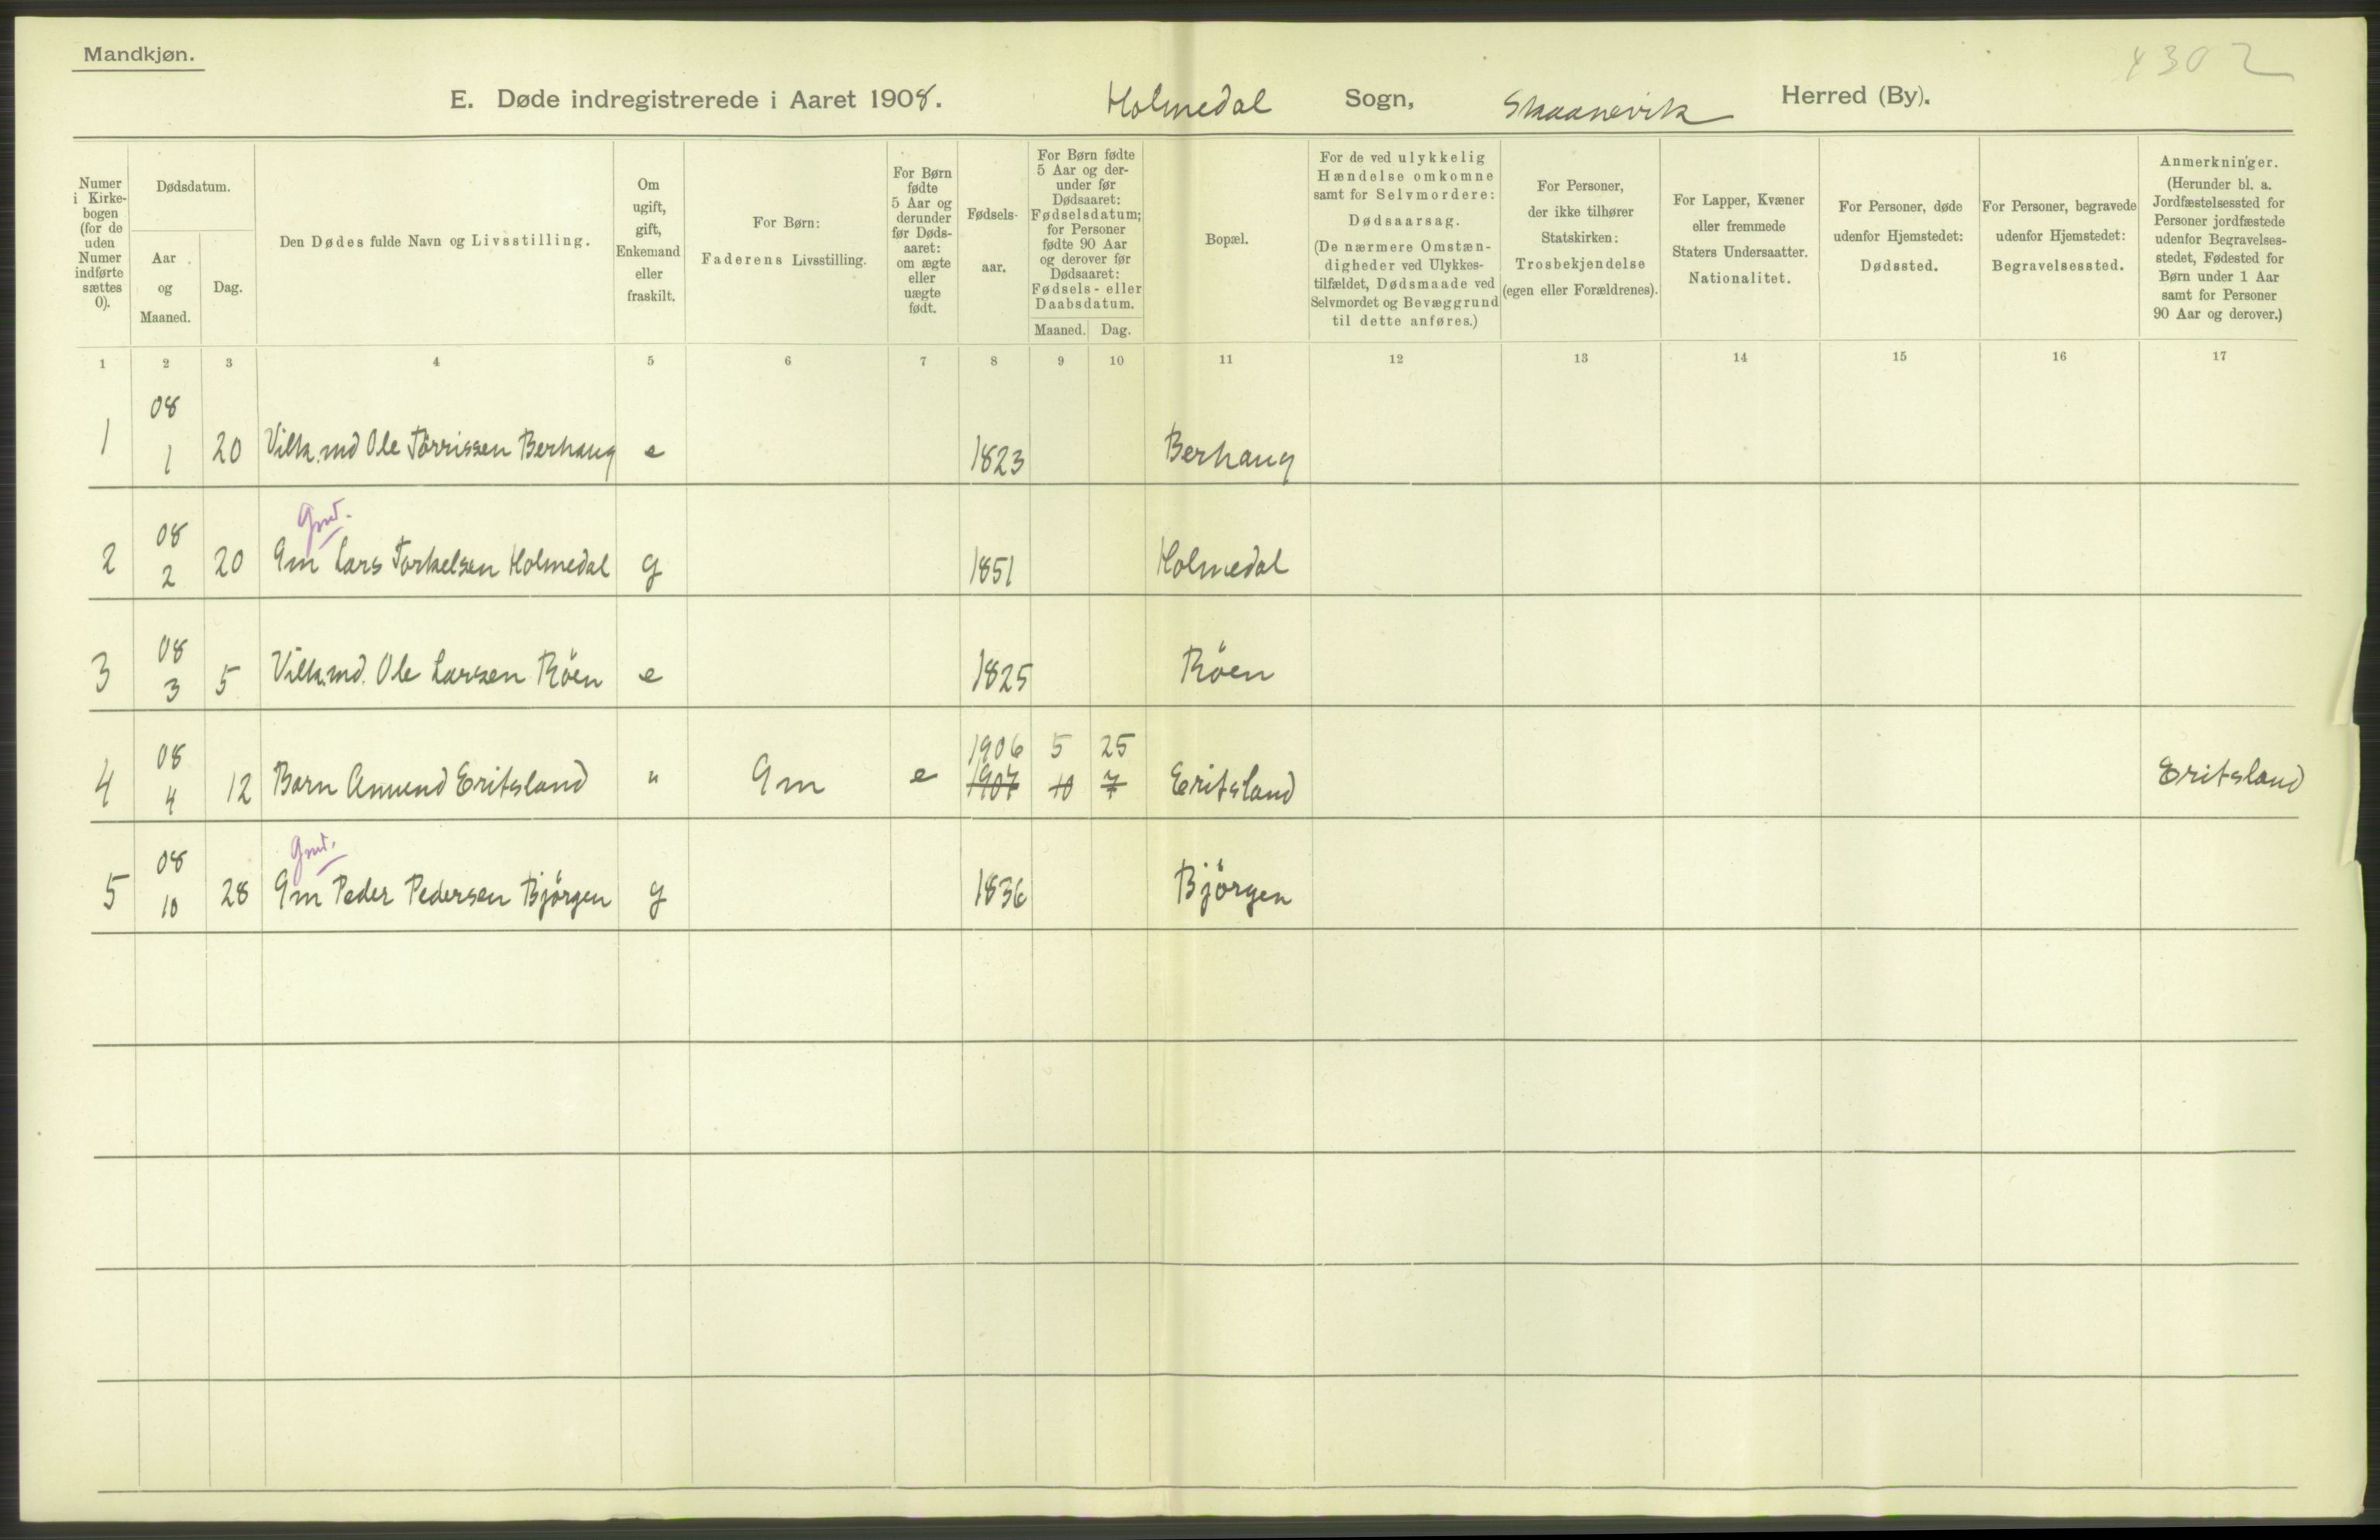 Mandkjøn.
4302
E. Døde indregistrerede i Aaret 1908. Holmedal Sogn, Skaanevik Herred (By).
Numer i Kirkebogen (for de uden Numer indførte sættes 0).
Dødsdatum.
Aar og Maaned.
Dag.
Den Dødes fulde Navn og Livsstilling.
Om ugift, gift, Enkemand eller fraskilt.
For Børn: Faderens Livsstilling.
For Børn fødte 5 Aar og derunder før Dødsaaret: om ægte eller uægte født.
Fødselsaar.
For Børn fødte 5 Aar og derunder før Dødsaaret: Fødselsdatum; for Personer fødte 90 Aar og derover før Dødsaaret: Fødsels- eller Daabsdatum.
Maaned. Dag.
Bopæl.
For de ved ulykkelig Hændelse omkomne samt for Selvmordere: Dødsaarsag. (De nærmere Omstændigheder ved Ulykkestilfældet, Dødsmaade ved Selvmordet og Bevæggrund til dette anføres.)
For Personer, der ikke tilhører Statskirken: Trosbekjendelse (egen eller Forældrenes).
For Lapper, Kvæner eller fremmede Staters Undersaatter. Nationalitet.
For Personer, døde udenfor Hjemstedet: Dødssted.
For Personer, begravede udenfor Hjemstedet: Begravelsessted.
Anmerkninger. (Herunder bl. a. Jordfæstelsessted for Personer jordfæstede udenfor Begravelsesstedet, Fødested for Børn under 1 Aar samt for Personer 90 Aar og derover.)
1 2 3 4 5 6 7 8 9 10 11 12 13 14 15 16 17
08
1 1 20 Vilk.md Ole Törrissen Berhaug e 1823 Berhaug
Gmd.
08
2 2 20 Gm Lars Torkelsen Holmedal g 1851 Holmedal
08
3 3 5 Vilk.md. Ole Larsen Röen e 1825 Röen
08 1906 5 25
4 4 12 Barn Amund Eritsland " Gm e 1907 10 7 Eritsland Eritsland
Gmd.
08
5 10 28 Gm Peder Pedersen Bjørgen g 1836 Bjørgen